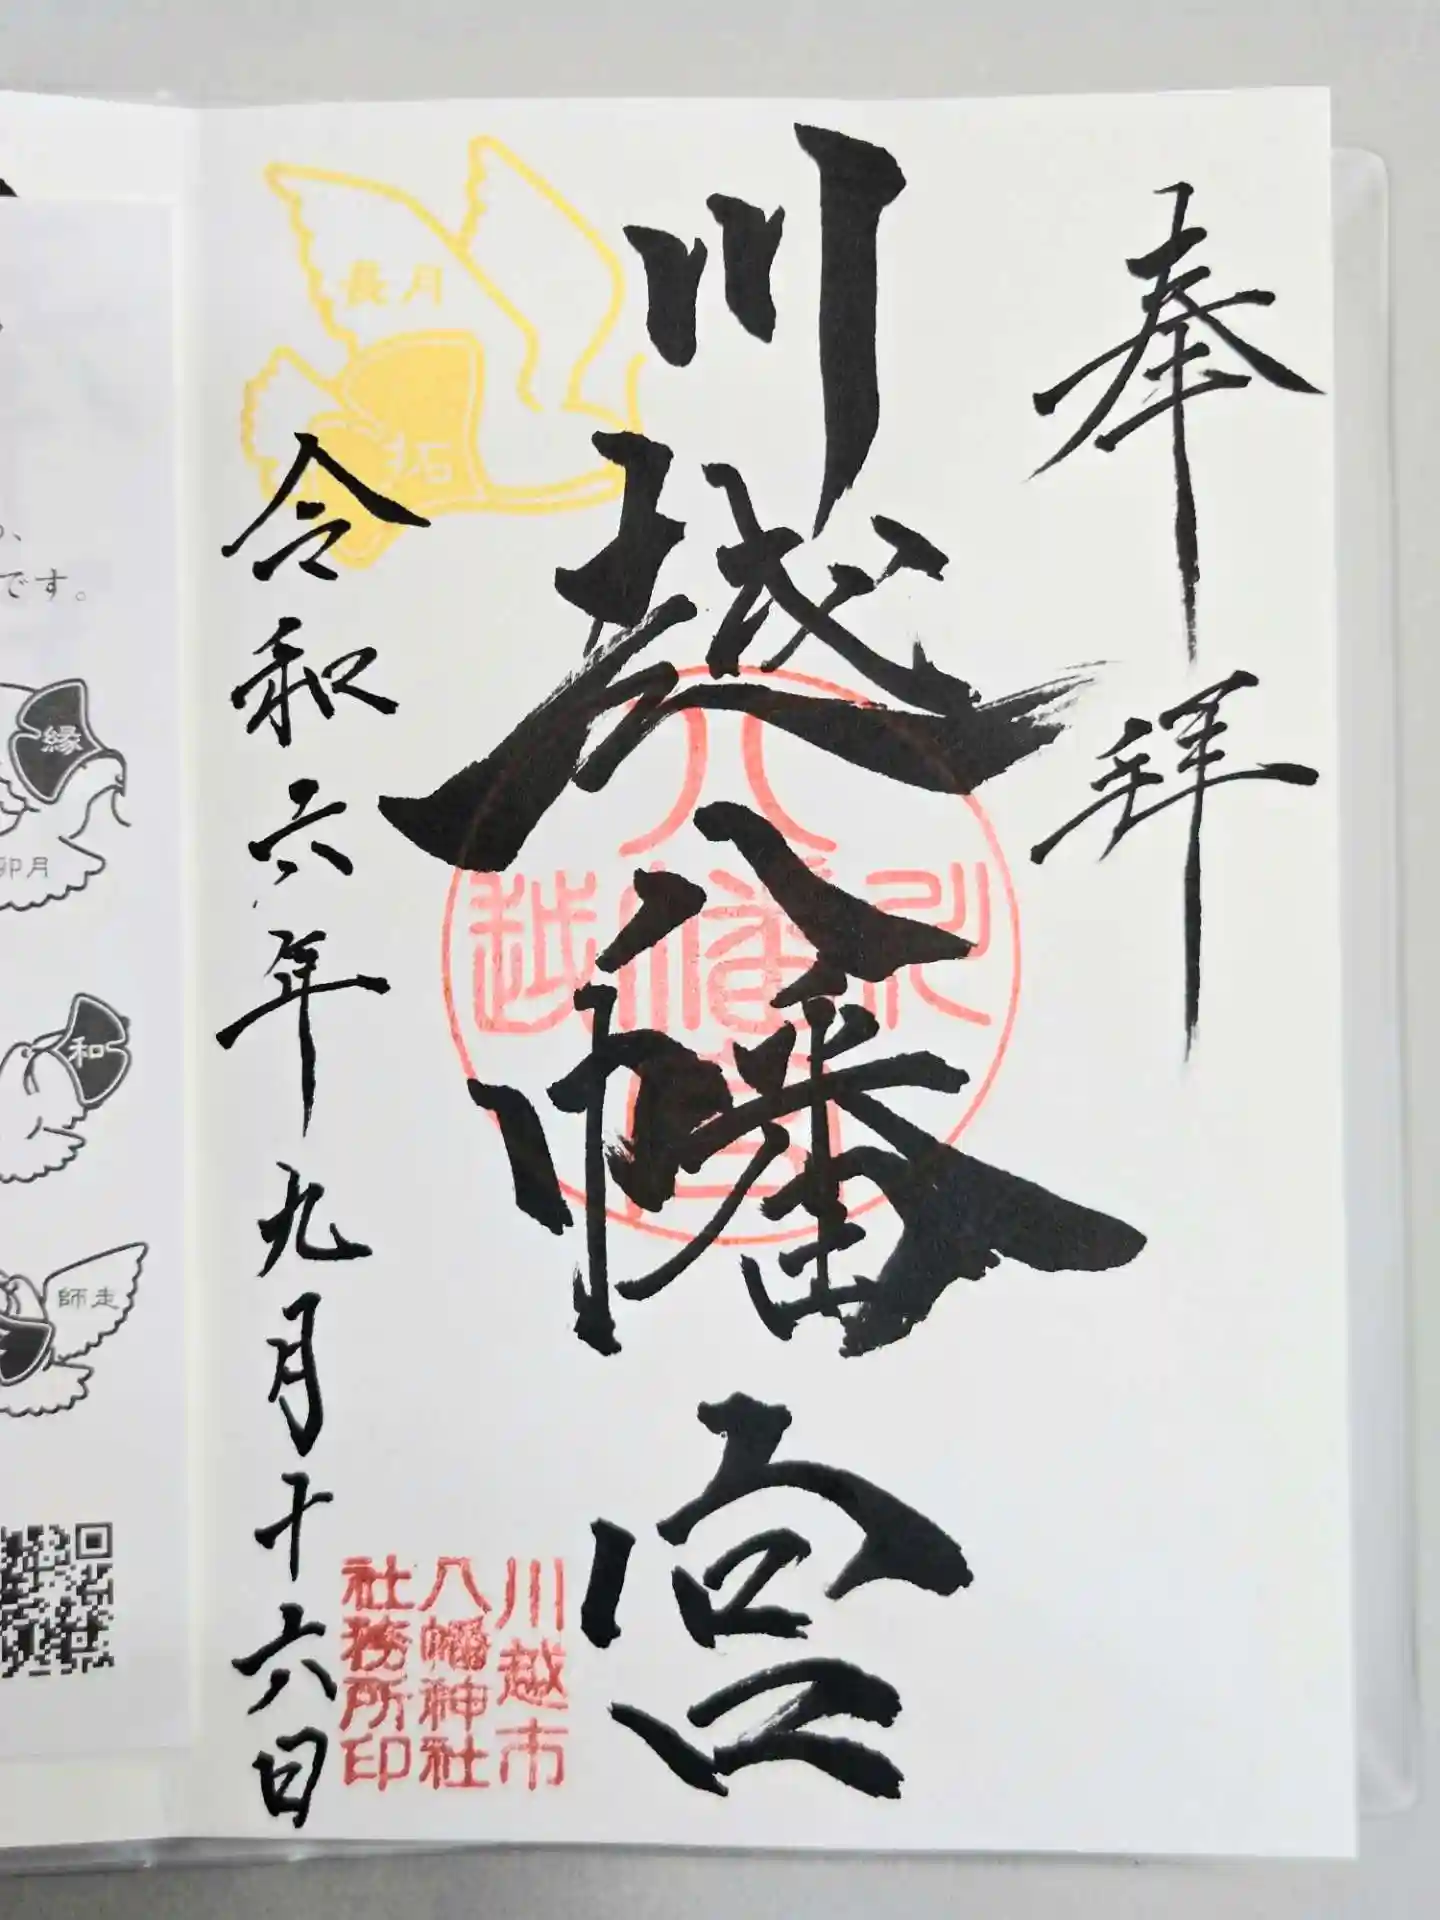 奉拝
川越八幡宮
八幡宮
川越
長月
拓
令和六年九月十六日
川越市
八幡神社
社務所印
です。
縁
卯月
和
師走